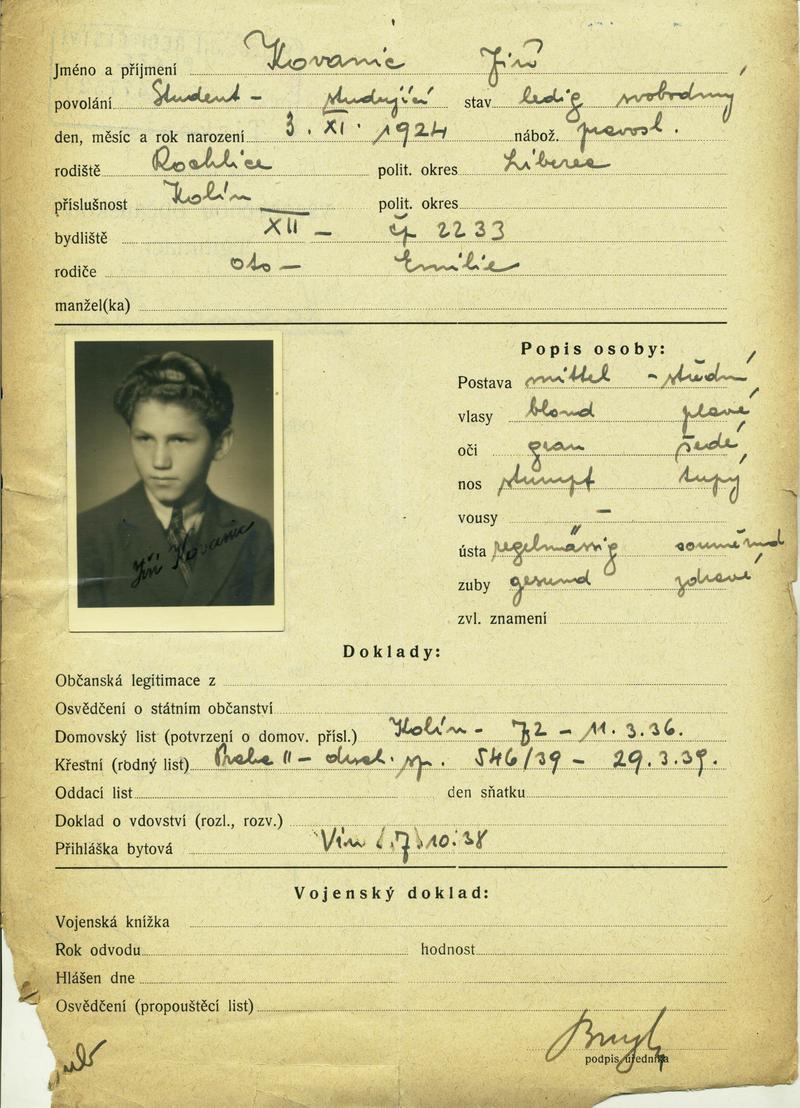 Jméno a příjmení Kovanic Jiří
povolání Student - studující stav ledig svobodný
den, měsíc a rok narození 3. XI. 1924 nábož. pravosl.
rodiště Rochlice polit. okres Liberec
příslušnost Kolín polit. okres
bydliště XII - čp 2233
rodiče Oto - Emilie
manžel(ka)
Popis osoby:
Postava mittel - střední
vlasy blond plavé
oči grau šedé
nos stumpf tupý
vousy -
ústa regelmässig souměrná
zuby gesund zdravé
zvl. znamení
Jiří Kovanic
Doklady:
Občanská legitimace z
Osvědčení o státním občanství
Domovský list (potvrzení o domov. přísl.) Kolín - 72 - 11.3.36.
Křestní (rodný list) Praha II - duch. sp. 546/39 - 29.3.39.
Oddací list den sňatku
Doklad o vdovství (rozl., rozv.)
Přihláška bytová 10.38
Vojenský doklad:
Vojenská knížka
Rok odvodu hodnost
Hlášen dne
Osvědčení (propouštěcí list)
podpis úředníka